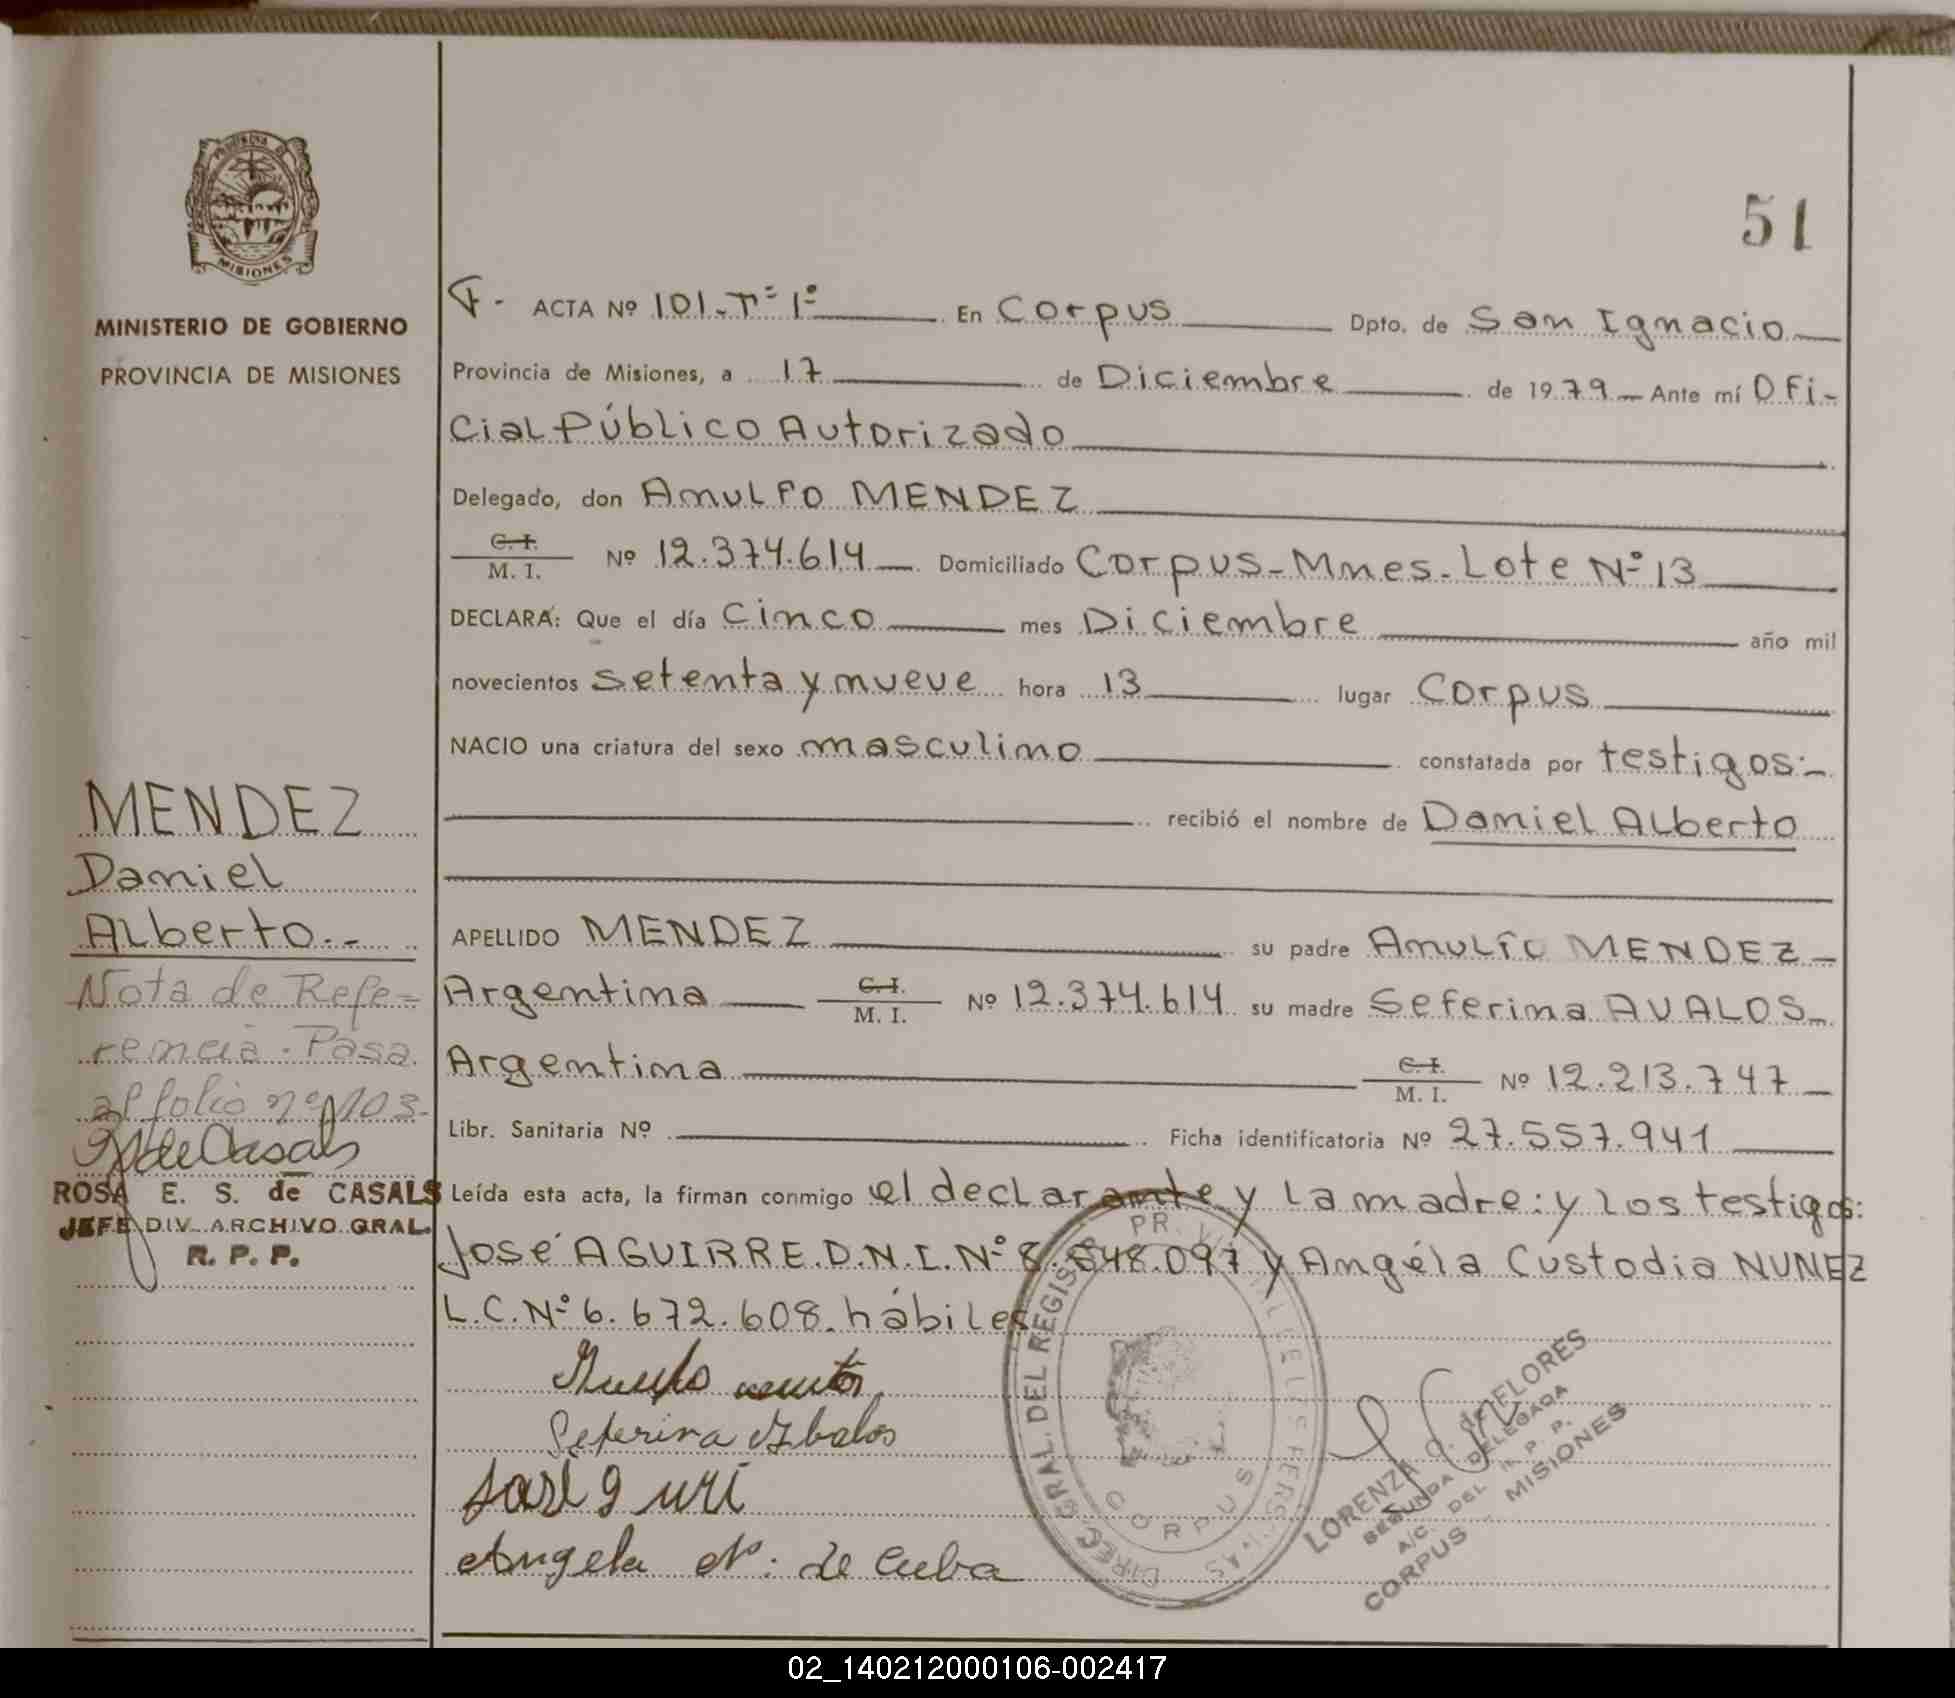 PROVINCIA DE
MISIONES
MINISTERIO DE GOBIERNO
PROVINCIA DE MISIONES
51
F- ACTA Nº 101-Tº 1º En Corpus Dpto. de San Ignacio
Provincia de Misiones, a 17 de Diciembre de 1979 Ante mí Ofi-
cial Público Autorizado
Delegado, don Arnulfo MENDEZ
C. I.
M. I. Nº 12.374.614 Domiciliado Corpus-Mnes-Lote Nº 13
DECLARA: Que el día Cinco mes Diciembre año mil
novecientos setenta y nueve hora 13 lugar Corpus
NACIO una criatura del sexo masculino constatada por testigos:-
recibió el nombre de Daniel Alberto
APELLIDO MENDEZ su padre Arnulfo MENDEZ
Argentina C. I.
M. I. Nº 12.374.614 su madre Seferina AVALOS
Argentina C. I.
M. I. Nº 12.213.747
Libr. Sanitaria Nº Ficha identificatoria Nº 27.557.941
Leída esta acta, la firman conmigo el declarante y la madre: y los testigos:
José AGUIRRE.D.N.I.Nº 8.548.097 y Angéla Custodia NUNEZ
L.C.Nº 6.672.608. hábiles
Seferina Abalos
Angela N. de Cuba
MENDEZ
Daniel
Alberto.-
Nota de Refe=
rencia. Pasa
al folio nº 103-
R de Casals
ROSA E. S. de CASALS
JEFE DIV. ARCHIVO GRAL.
R. P. P.
DIREC. GRAL. DEL REGISTRO PROVINCIAL DE LAS PERSONAS
CORPUS
LORENZA G. de FLORES
SEGUNDA DELEGADA
A/C. DEL R. P. P.
CORPUS - MISIONES
02_140212000106-002417